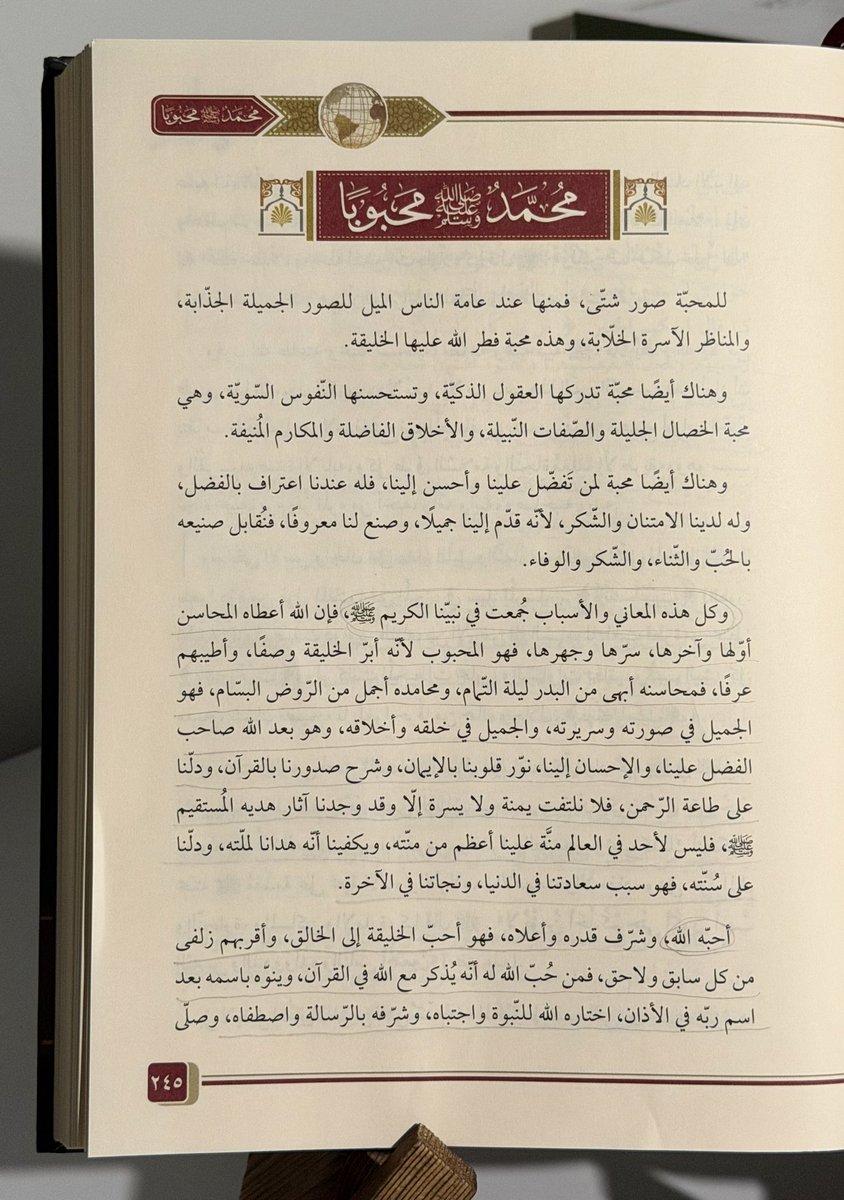 محمد ﷺ محبوبا
مُحَمَّدٌ ﷺ مَحْبُوبًا
للمحبّة صور شتّى، فمنها عند عامة الناس الميل للصور الجميلة الجذّابة،
والمناظر الآسرة الخلّابة، وهذه محبة فطر الله عليها الخليقة.
وهناك أيضًا محبّة تدركها العقول الذكيّة، وتستحسنها النّفوس السّويّة، وهي
محبة الخصال الجليلة والصّفات النّبيلة، والأخلاق الفاضلة والمكارم المُنيفة.
وهناك أيضًا محبة لمن تَفضّل علينا وأحسن إلينا، فله عندنا اعتراف بالفضل،
وله لدينا الامتنان والشّكر، لأنّه قدّم إلينا جميلًا، وصنع لنا معروفًا، فنُقابل صنيعه
بالحُبّ والثّناء، والشّكر والوفاء.
وكل هذه المعاني والأسباب جُمعت في نبيّنا الكريم ﷺ، فإن الله أعطاه المحاسن
أوّلها وآخرها، سرّها وجهرها، فهو المحبوب لأنّه أبرّ الخليقة وصفًا، وأطيبهم
عرفًا، فمحاسنه أبهى من البدر ليلة التّمام، ومحامده أجمل من الرّوض البسّام، فهو
الجميل في صورته وسريرته، والجميل في خلقه وأخلاقه، وهو بعد الله صاحب
الفضل علينا، والإحسان إلينا، نوّر قلوبنا بالإيمان، وشرح صدورنا بالقرآن، ودلّنا
على طاعة الرّحمن، فلا نلتفت يمنة ولا يسرة إلّا وقد وجدنا آثار هديه المُستقيم
ﷺ، فليس لأحد في العالم منَّة علينا أعظم من منّته، ويكفينا أنّه هدانا لملّته، ودلّنا
على سُنّته، فهو سبب سعادتنا في الدنيا، ونجاتنا في الآخرة.
أحبّه الله، وشرّف قدره وأعلاه، فهو أحبّ الخليقة إلى الخالق، وأقربهم زلفى
من كل سابق ولاحق، فمن حُبّ الله له أنّه يُذكر مع الله في القرآن، وينوّه باسمه بعد
اسم ربّه في الأذان، اختاره الله للنّبوة واجتباه، وشرّفه بالرّسالة واصطفاه، وصلّى
٢٤٥